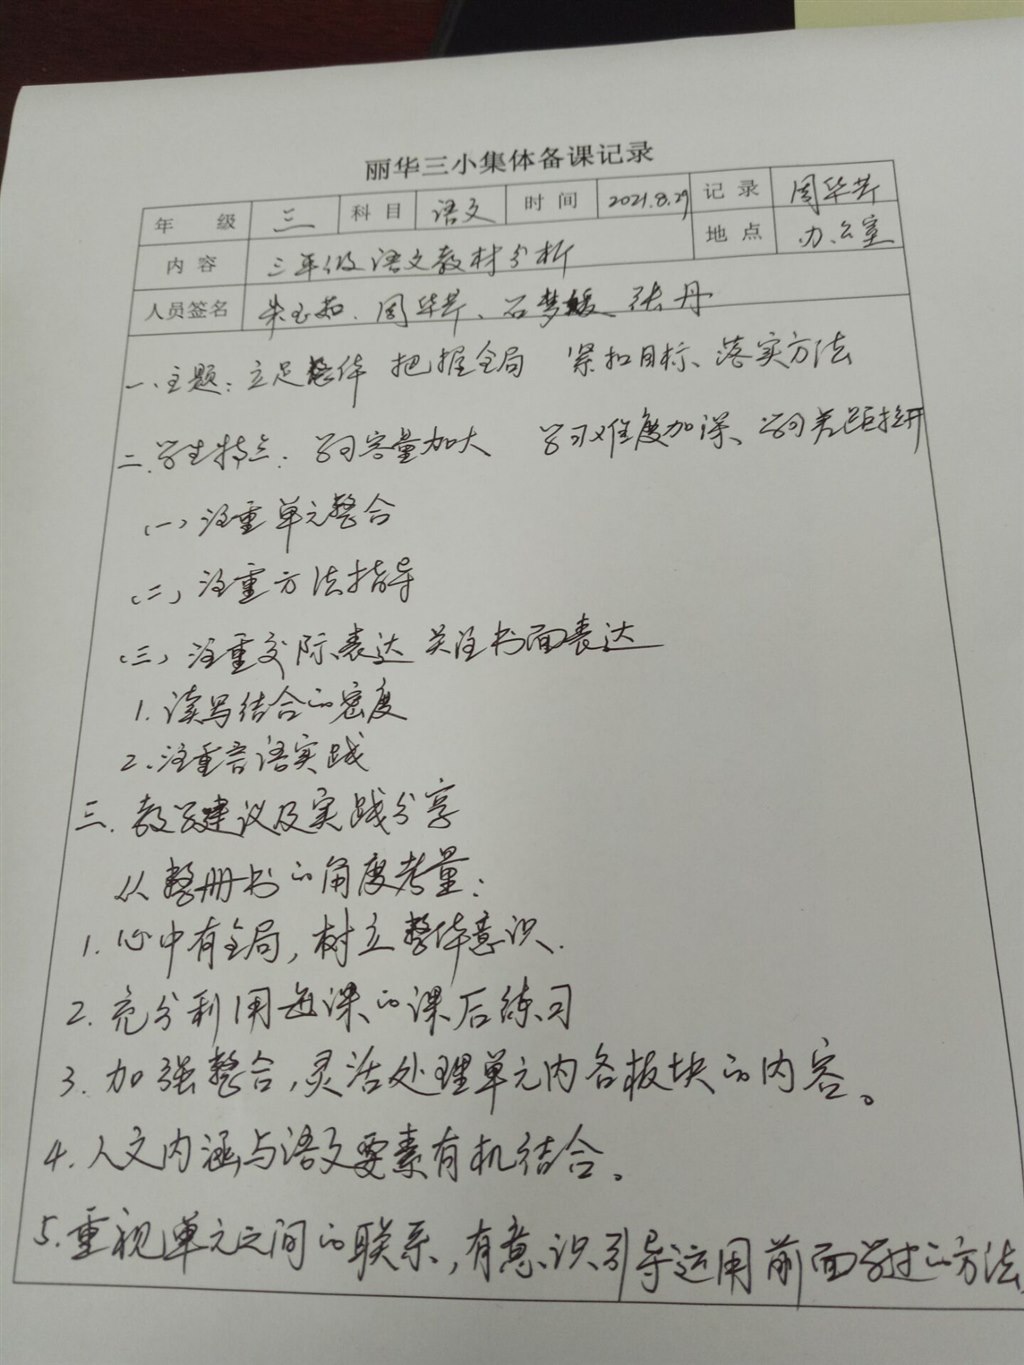 丽华三小集体备课记录
年 级 三 科目 语文 时间 2021.8.29 记录 周华芹
地点 办公室
内容 三年级语文教材分析
人员签名 朱玉茹、周华芹、石梦媛、张丹
一、主题：立足整体 把握全局 紧扣目标、落实方法
二、学生特点：学习容量加大 学习难度加深、学习差距拉开
(一) 注重单元整合
(二) 注重方法指导
(三) 注重交际表达 关注书面表达
1. 读写结合的密度
2. 注重言语实践
三. 教学建议及实践分享
从整册书的角度考量：
1. 心中有全局，树立整体意识.
2. 充分利用每课的课后练习
3. 加强整合，灵活处理单元内各板块的内容。
4. 人文内涵与语文要素有机结合。
5. 重视单元之间的联系，有意识引导运用前面学过的方法